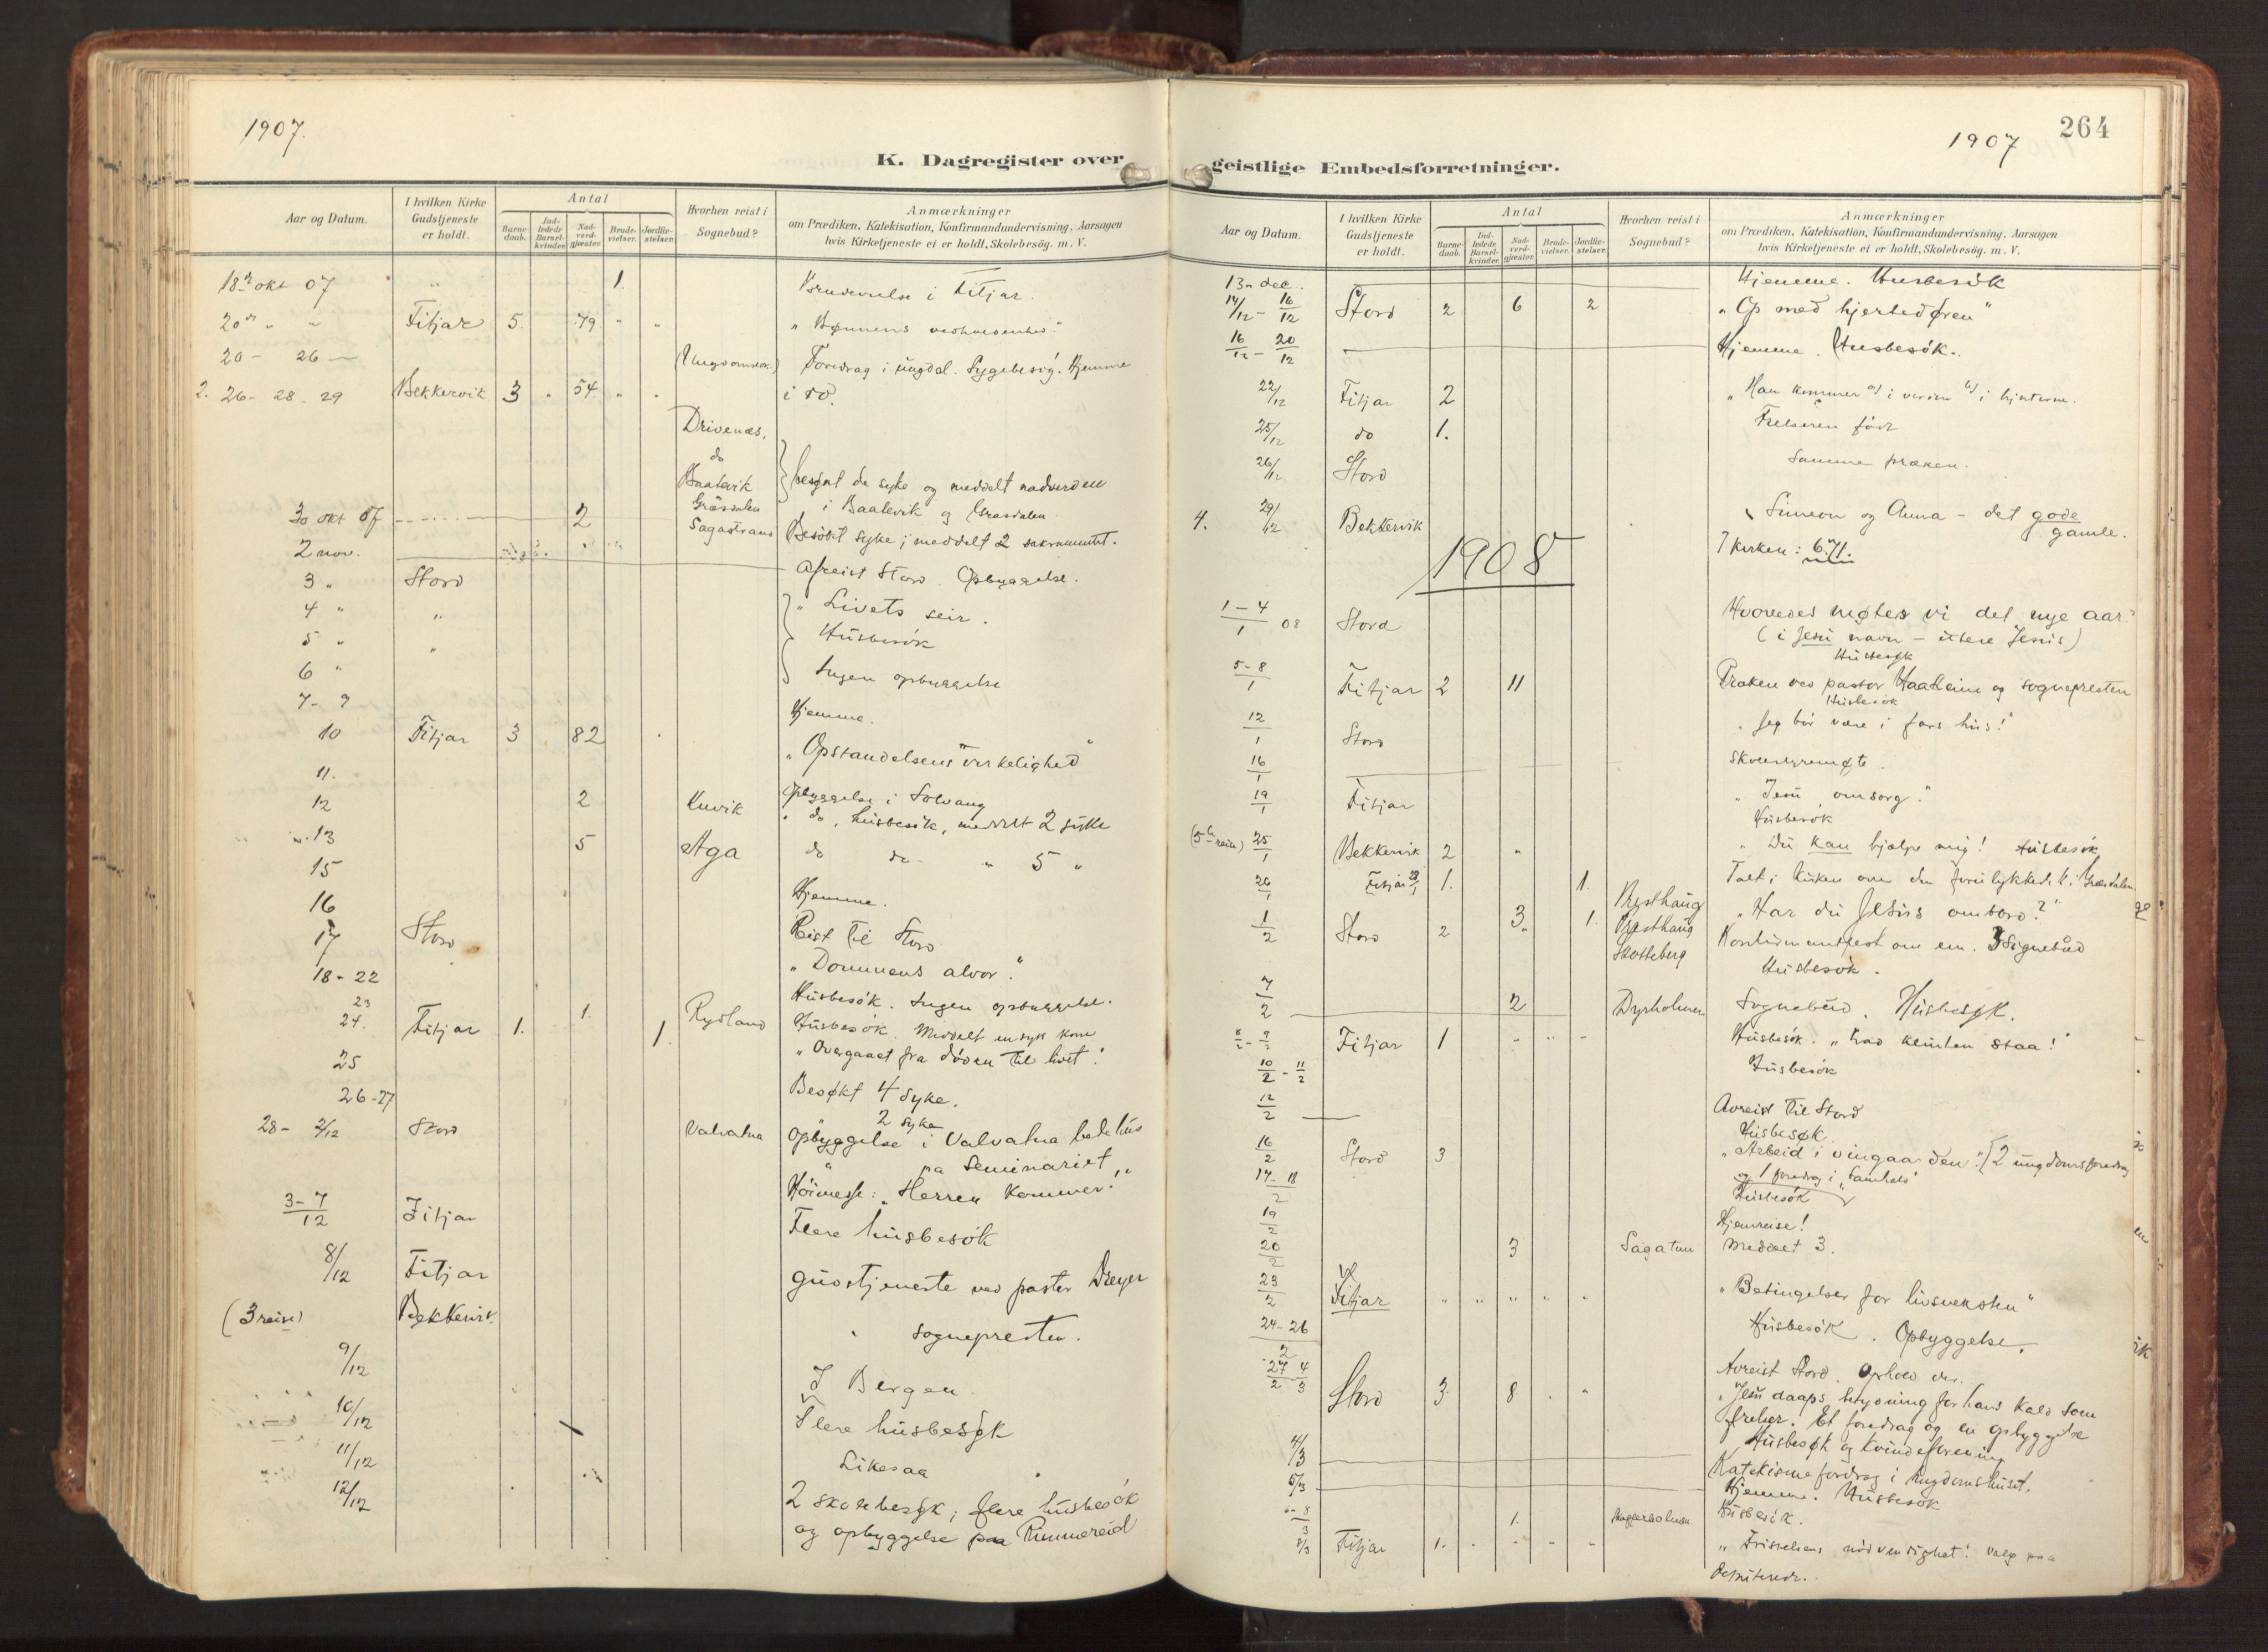 1907.
K. Dagregister over
Aar og Datum.
I hvilken Kirke Gudstjeneste er holdt.
Antal
Barne-daab.
Ind-ledede Barsel-kvinder
Nad-verd-gjæster
Brude-vielser.
Jordfæ-stelser.
Hvorhen reist i Sognebud?
Anmærkninger
om Prædiken, Katekisation, Konfirmandundervisning, Aarsagen
hvis Kirketjeneste ei er holdt, Skolebesög. m. V.
18de okt 07 " 1. i Fitjar.
20de " " Fitjar 5. 79 " " "Bønnens
20 - 26 - Foredrag i ungdal. Sygebesög. Hjemme
2. 26 - 28 - 29 Bekkervik 3 " 54 " " i do.
Drivenæs,
do
Baatevik besøgt de syke og meddelt nadverden
Gräsdalen i Baatevik og Gräsdalen
30 okt 07 2 Sagastrand Besökt syke; meddelt 2 sakramentet.
2 nov. Afreist Stord. Opbyggelse.
3 " Stord "Livets seir.
4 " " Husbesök
5 " "
6 " Ingen opbyggelse
7 - 9 Hjemme.
10 Fitjar 3 82 "Opstandelsens virkelighed"
11. Opbyggelse i Solvang
12 2 Kuvik " do, husbesök, meddelt 2 syke
13 5 Aga do do " 5 "
15 Hjemme.
16 Reist til Stord
17 Stord "Dommens alvor."
18 - 22 Husbesök. Ingen opbyggelse.
23 1. Rydland Husbesök. Meddelt en syk kone
24. Fitjar 1. 1. "Overgaaet fra döden til livet."
25 Besøkt 4 syke.
26-27 2 syke
28 - 2/12 Stord Valvatna Opbyggelse i Valvatna bedehus
" paa Seminariet
Höimesse: "Herren kommer!"
3-7/12 Fitjar Flere husbesök
8/12 Fitjar gudstjeneste ved pastor Dreyer
(3 reise) Bekkervik. " sognepresten.
9/12 I Bergen.
10/12 Flere husbesøk
11/12 Likesaa
12/12 2 skolebesøk; flere husbesök
og opbyggelse paa Rimmereid
264
1907
geistlige Embedsforretninger.
Aar og Datum.
I hvilken Kirke Gudstjeneste er holdt.
Antal
Barne-daab.
Ind-ledede Barsel-kvinder
Nad-verd-gjæster
Brude-vielser.
Jordfæ-stelser.
Hvorhen reist i Sognebud?
Anmærkninger
om Prædiken, Katekisation, Konfirmandundervisning, Aarsagen
hvis Kirketjeneste ei er holdt, Skolebesög. m. V.
13de dec. Hjemme. Husbesök
14/12 - 16/12 Stord 2 6 2 "Op med hjertedøren"
16/12 - 20/12 Hjemme. Husbesök.
22/12 Fitjar 2 "Han kommer a) i verden b) i hjerterne.
25/12 do 1. Frelseren född
26/12 Stord Samme præken.
4. 29/12 Bekkervik Simeon og Anna - det gode gamle.
I kirken: 6.
1908
1-4/1 08 Stord Hvorledes møtes vi det nye aar?
(i Jesu navn - Jesus)
Husbesøk
5-8/1 Fitjar 2 11 Præken ved pastor Haaheim og sognepresten
Husbesök
12/1 Stord "Jeg bör være i fars hus!"
16/1 Skolestyremøte.
19/1 Fitjar "Jesu omsorg."
Husbesök
(5te reise) 25/1 Bekkervik 2 " "Du kan hjælpe mig! Husbesök
26/1 Fitjar 28/1 1. 1. Talt i kirken over den forulykkede i Græsdalen.
Rysthaug "Har du Jesus ombord?"
1/2 Stord 2 3 1. Rysthaug
Skotteberg om em. 3 Sognebud
Husbesök.
7/2 2 Dyrholmen Sognebud. Husbesøk.
8/2 - 9/2 Fitjar 1 " " " Husbesök. "Lad klinten staa!"
10/2 - 11/2 Husbesök
12/2 Avreist til Stord
Husbesøk
16/2 Stord 3 "Arbeid i vingaarden". 2 ungdomsforedrag
og 1 foredrag i "Samhold"
17-18/2 Husbesök
19/2 Hjemreise!
20/2 3 Sagatun Meddelt 3.
23/2 Fitjar " " " " " "Betingelser for livsveksten"
24-26/2 Husbesök. Opbyggelse.
27/2 4/3 Stord 3. 8 " " Avreist Stord. Ophold der.
"Jesu daaps betydning for hans kald som
frelser. Et foredrag og en opbyggelse
Husbesøk og kvindeforening
4/3 Katekismefordrag i Ungdomshuset.
5/3 Hjemme. Husbesök
6-8/3 1. Husbesök.
8/3 Fitjar 1. " " " " nödvendighet! Valg paa